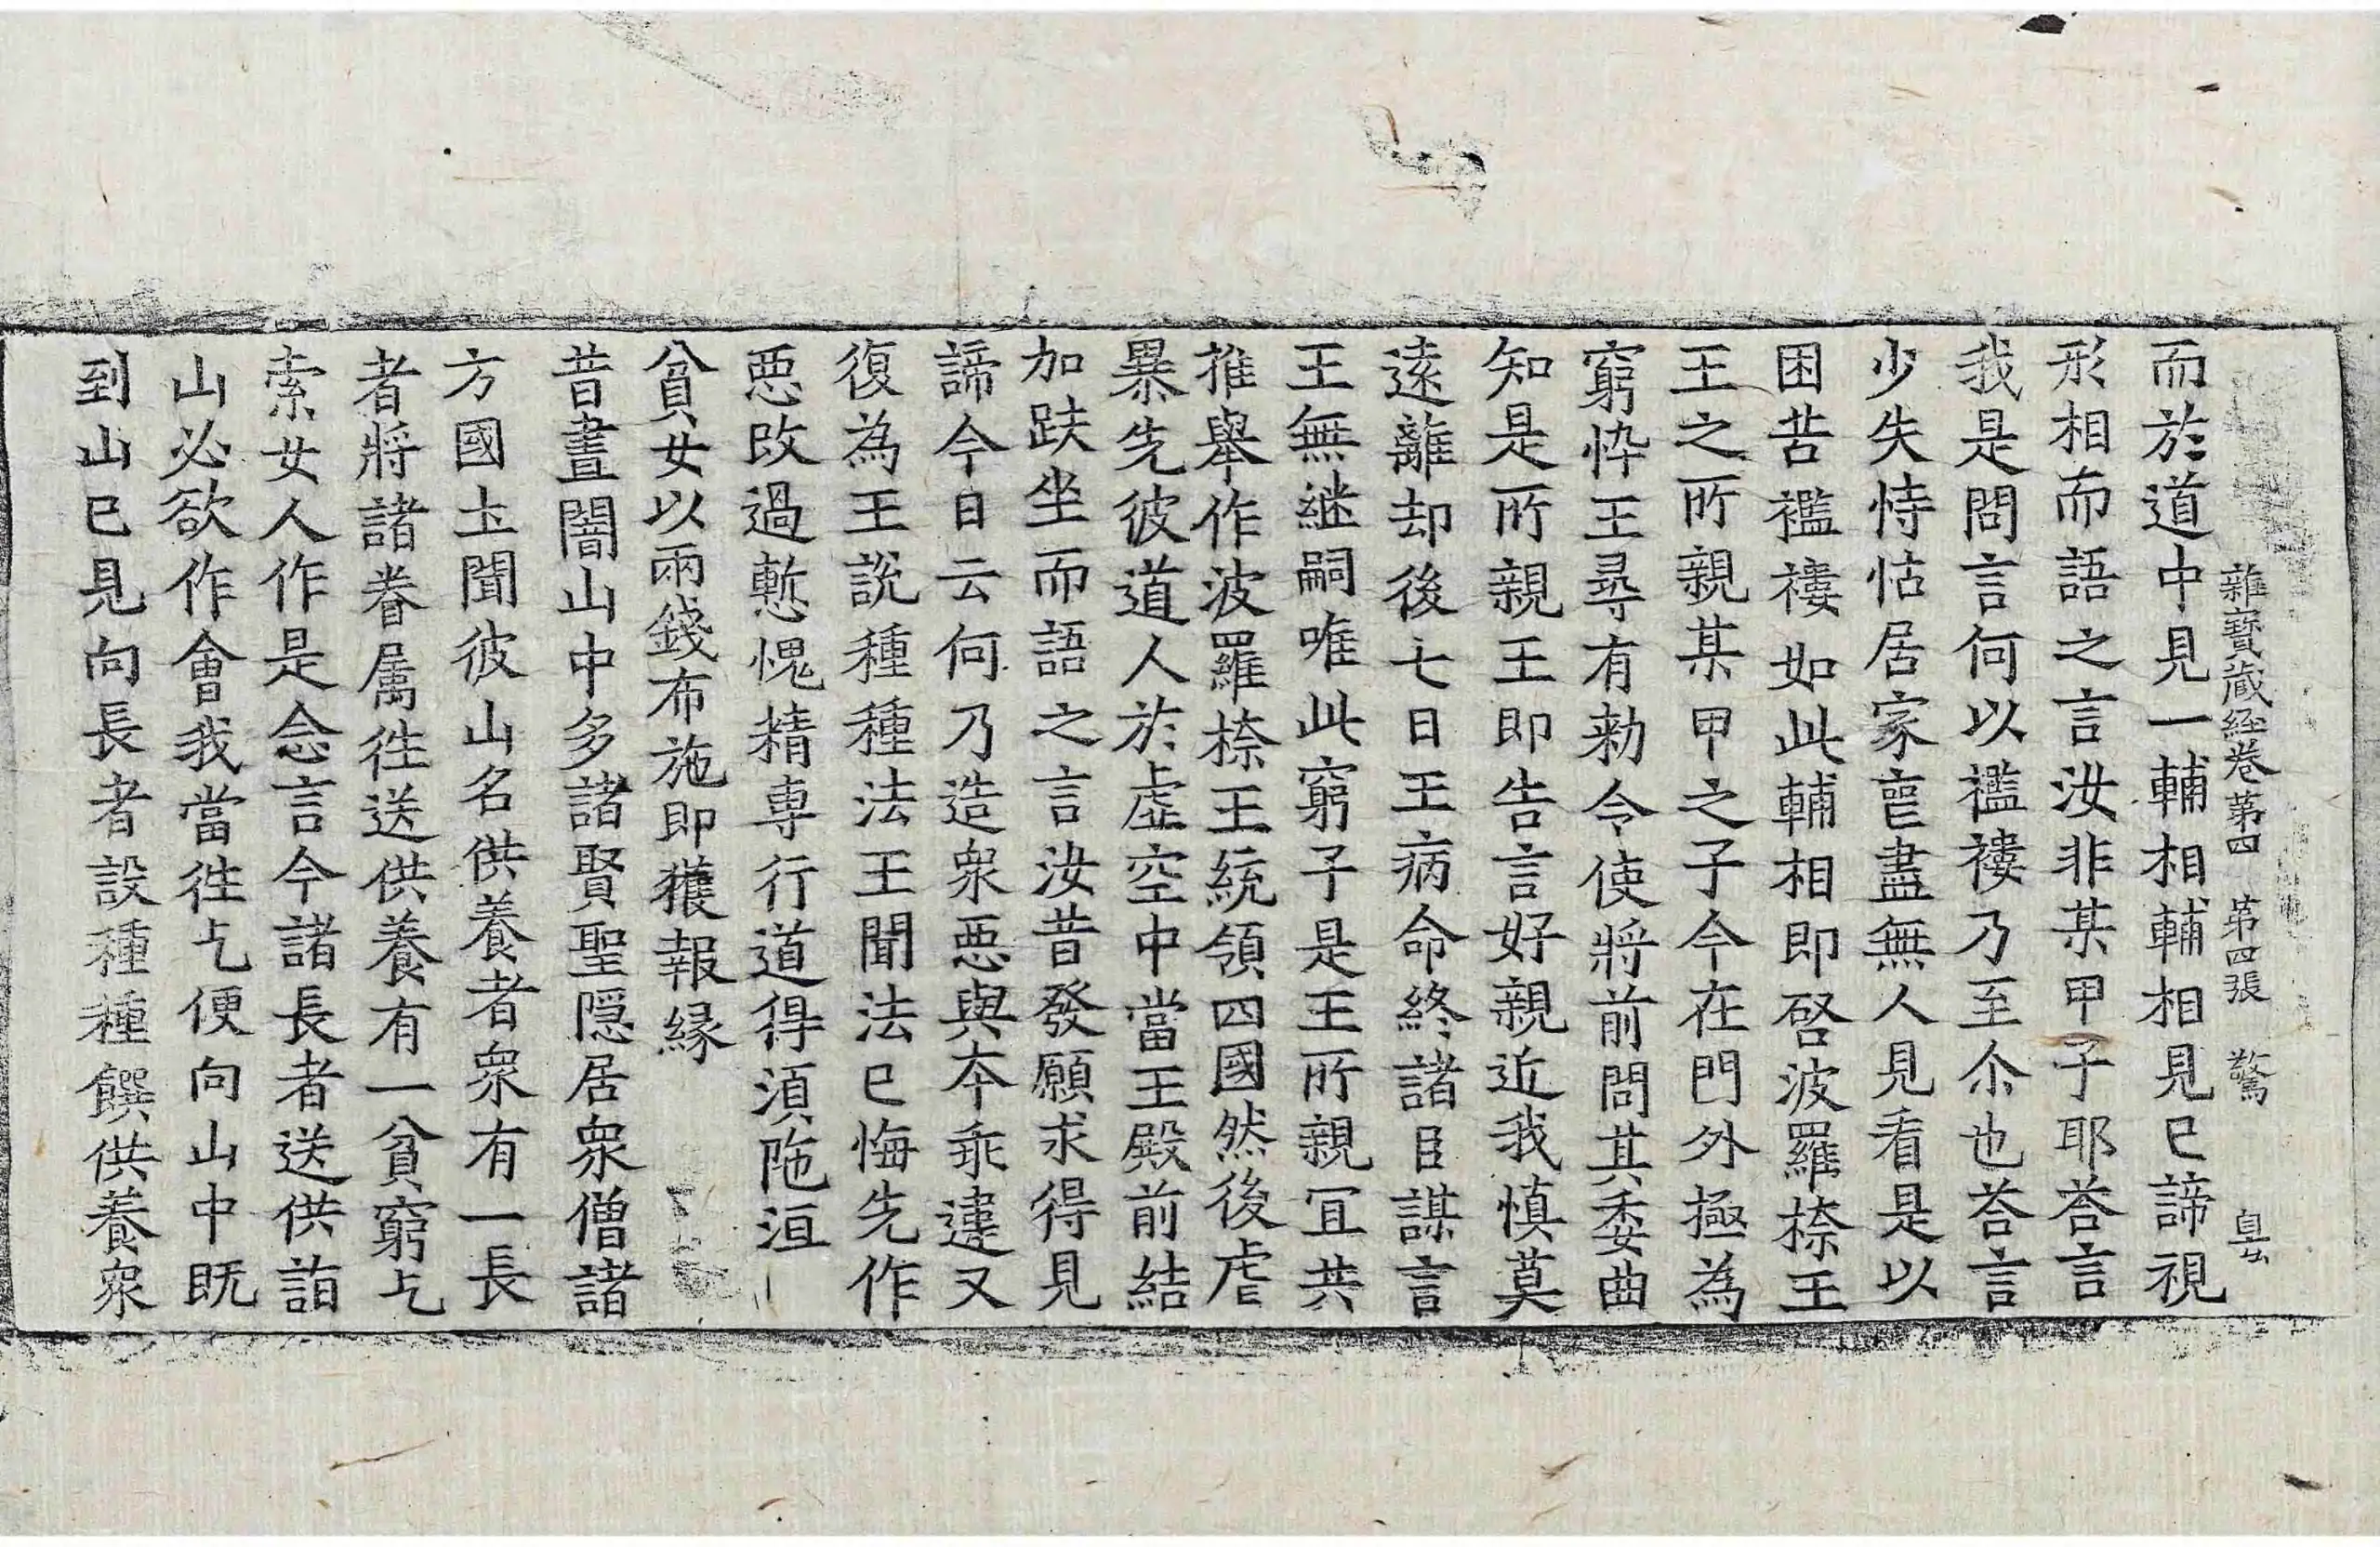 雜寶藏經卷第四 第四張 驚
而於道中見一輔相輔相見已諦視
形相而語之言汝非某甲子耶荅言
我是問言何以襤褸乃至尒也荅言
少失恃怙居家䘮盡無人見看是以
困苦襤褸如此輔相即啓波羅㮈王
王之所親某甲之子今在門外極為
窮悴王尋有勑令使將前問其委曲
知是所親王即告言好親近我慎莫
遠離却後七日王病命終諸臣謀言
王無継嗣唯此窮子是王所親冝共
推舉作波羅㮈王統領四國然後虐
暴先彼道人於虛空中當王殿前結
加趺坐而語之言汝昔發願求得見
諦今日云何乃造衆惡與本乖違又
復為王說種種法王聞法已悔先作
惡改過慙愧精專行道得湏陁洹
貧女以兩錢布施即獲報縁
昔晝闇山中多諸賢聖隠居衆僧諸
方國土聞彼山名供養者衆有一長
者將諸眷属徃送供養有一貧窮乞
索女人作是念言今諸長者送供詣
山必欲作會我當徃乞便向山中既
到山已見向長者設種種饌供養衆